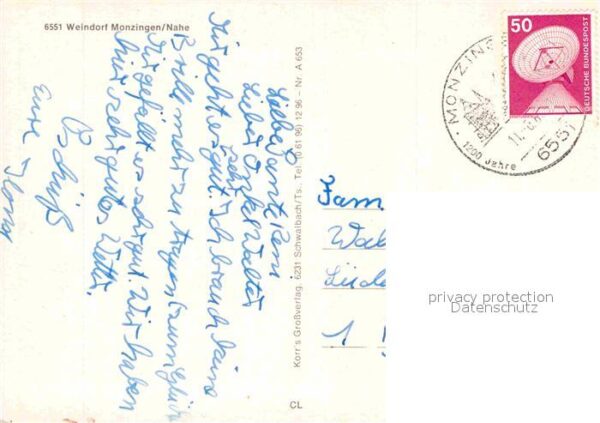 6551 Weindorf Monzingen/Nahe
Liebe Tante Reni
Lieber Onkel Walter
Mir geht es sehr gut. Ich brauch keine
Brille mehr zu tragen, zum Glück.
Mir gefällt es sehr gut. Wir haben
hier sehr gutes Wetter.
Tschüß
Eure Ilona
Korr's Großverlag, 6231 Schwalbach/Ts., Tel. (0 61 96) 12 96 - Nr. A 653
CL
50
DEUTSCHE BUNDESPOST
MONZING
1200 Jahre
6551
Fam
Wal
Lüde
1
privacy protection
Datenschutz